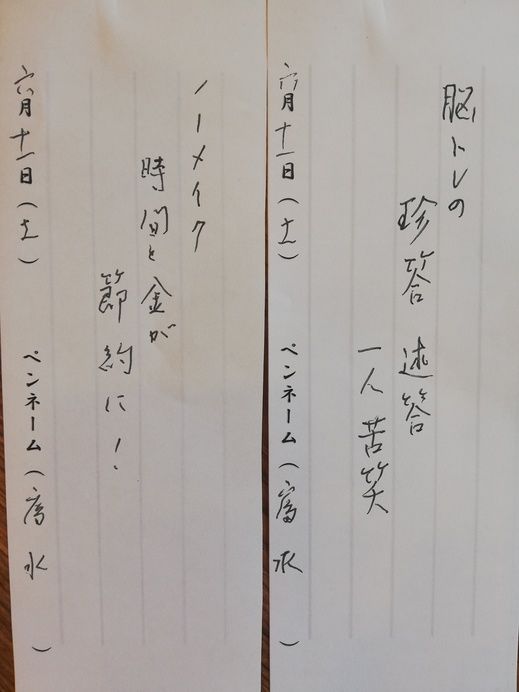 脳トレの
珍答 述答
一人苦笑
六月十一日(土) ペンネーム(富水)
ノーメイク
時間と金が
節約に!
六月十一日(土) ペンネーム(富水)